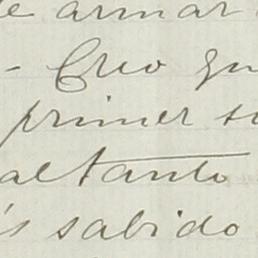 de armar
- Creo qu
primer su
al tanto
ís sabido